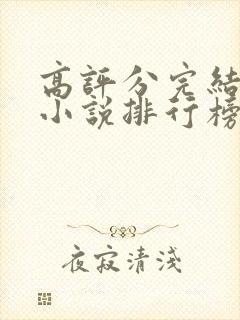 高評分完結
小說排行榜
夜寂清淺